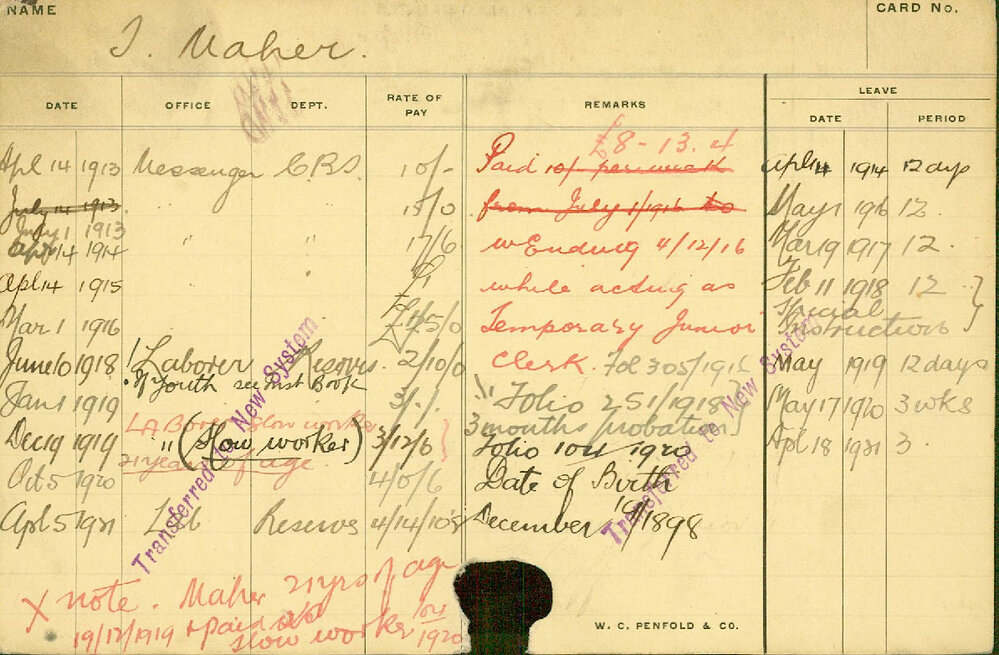 NAME
CARD No.
J. Maher.
DATE OFFICE DEPT. RATE OF PAY REMARKS LEAVE
DATE PERIOD
£8 - 13. 4
Apl 14 1913 Messenger C.B.S. 10/- Paid 10/- per week Apl 14 1914 12 days
July 14 1913 15/0 from July 1/1916 to May 1 1916 12.
July 1 1913
Apl 14 1914 " " 17/6 wEnding 4/12/16 Mar 19 1917 12.
Apl 14 1915 " £1 while acting as Feb 11 1918 12
Special Instruction
Mar 1 1916 £1/5/0 Temporary Junior
June 10 1918 Laborer Reserves. 2/10/0 Clerk. Fol 305/1916 May 1919 12 days
or Youth see Inst Book
Jan 1 1919 3/1/. " Folio 251/1918 May 17 1920 3 wks
Labor Slow worker 3 months probation
Dec 19 1919 " (Slow worker) 3/12/6 Folio 104 1920 Apl 18 1921 3.
21 years of age
Oct 5 1920 4/0/6 Date of Birth
Apl 5 1921 Lab Reserves 4/14/10½ December 19/1898
Transferred to New System
Transferred to New System
X note. Maher 21 yrs of age
19/12/1919 + paid as
slow worker 104/1920
W. C. PENFOLD & CO.